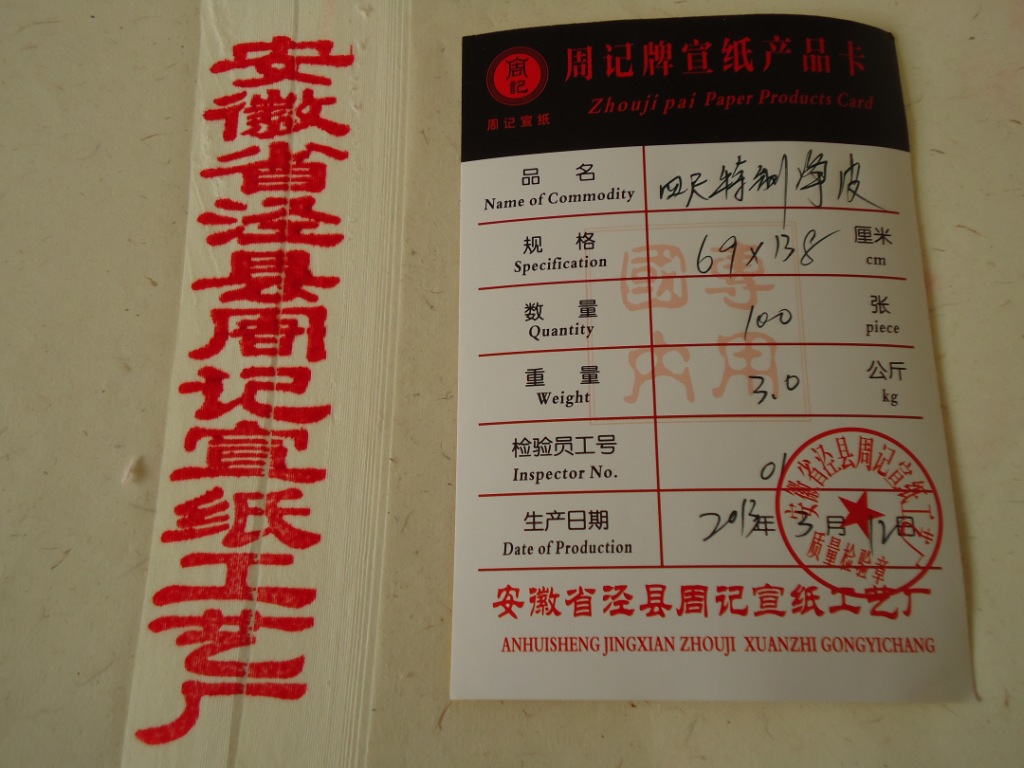 安徽省泾县周记宣纸工艺厂
周记
周记宣纸
周记牌宣纸产品卡
Zhouji pai Paper Products Card
品名 四尺特制净皮
Name of Commodity
规格 69×138 厘米
Specification cm
國寳
专用
数量 100 张
Quantity piece
重量 3.0 公斤
Weight kg
检验员工号 01
Inspector No.
生产日期 2013年3月12日
Date of Production
安徽省泾县周记宣纸工艺厂
质量检验章
安徽省泾县周记宣纸工艺厂
ANHUISHENG JINGXIAN ZHOUJI XUANZHI GONGYICHANG